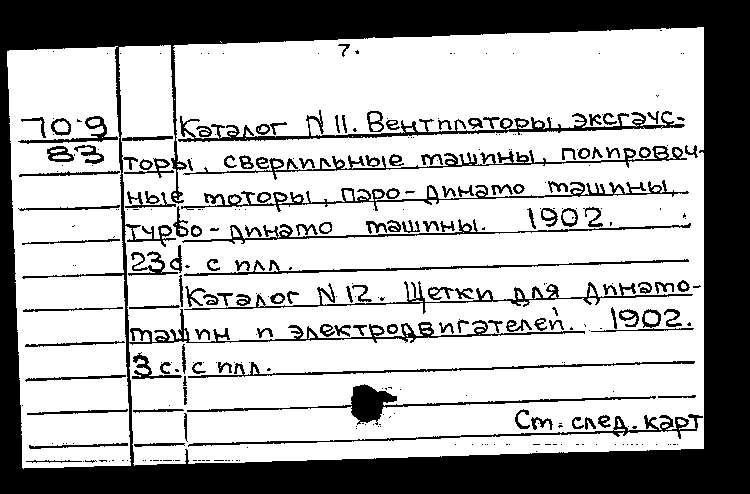 7.
70-9 Каталог N 11. Вентиляторы, эксгаус-
83 торы, сверлильные машины, полировоч-
ные моторы, паро-динамо машины,
турбо-динамо машины. 1902.
23 с. с илл.
Каталог N 12. Щетки для динамо-
машин и электродвигателей. 1902.
3 с. с илл.
См. след. карт